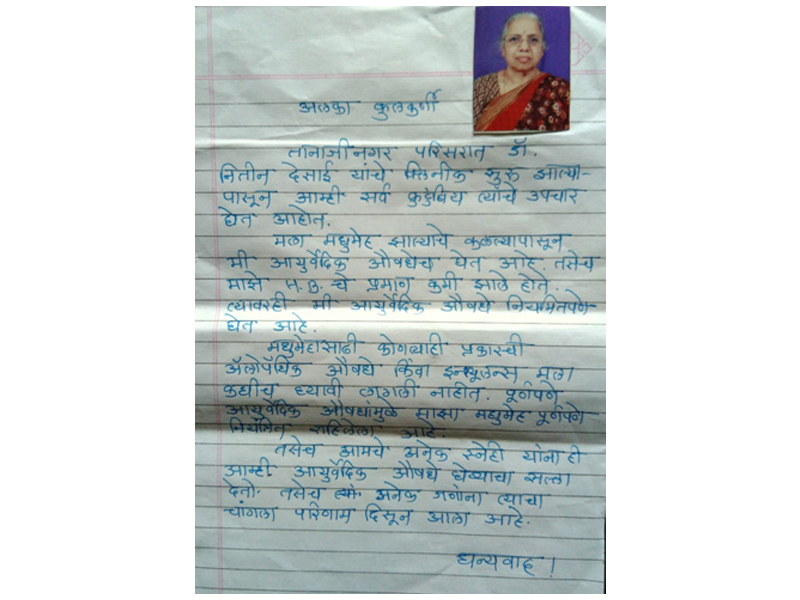 अलका कुलकर्णी
तानाजीनगर परिसरात डॉ.
नितीन देसाई यांचे क्लिनीक सुरु झाल्या-
पासून आम्ही सर्व कुटुंबिय त्यांचे उपचार
घेत आहोत.
मला मधुमेह झाल्याचे कळल्यापासून
मी आयुर्वेदिक औषधेच घेत आहे. तसेच
माझे H.B. चे प्रमाण कमी झाले होते.
त्यावरही मी आयुर्वेदिक औषधे नियमितपणे
घेत आहे.
मधुमेहासाठी कोणत्याही प्रकारची
अ‍ॅलोपॅथिक औषधे किंवा इन्शुलन्स मला
कधीच घ्यावी लागली नाहीत. पूर्णपणे
आयुर्वेदिक औषधांमुळे माझा मधुमेह पूर्णपणे
नियंत्रित राहिलेला आहे.
तसेच आमचे अनेक स्नेही यांनाही
आम्ही आयुर्वेदिक औषधे घेण्याचा सल्ला
देतो. तसेच अनेक जणांना त्याचा
चांगला परिणाम दिसून आला आहे.
धन्यवाद !